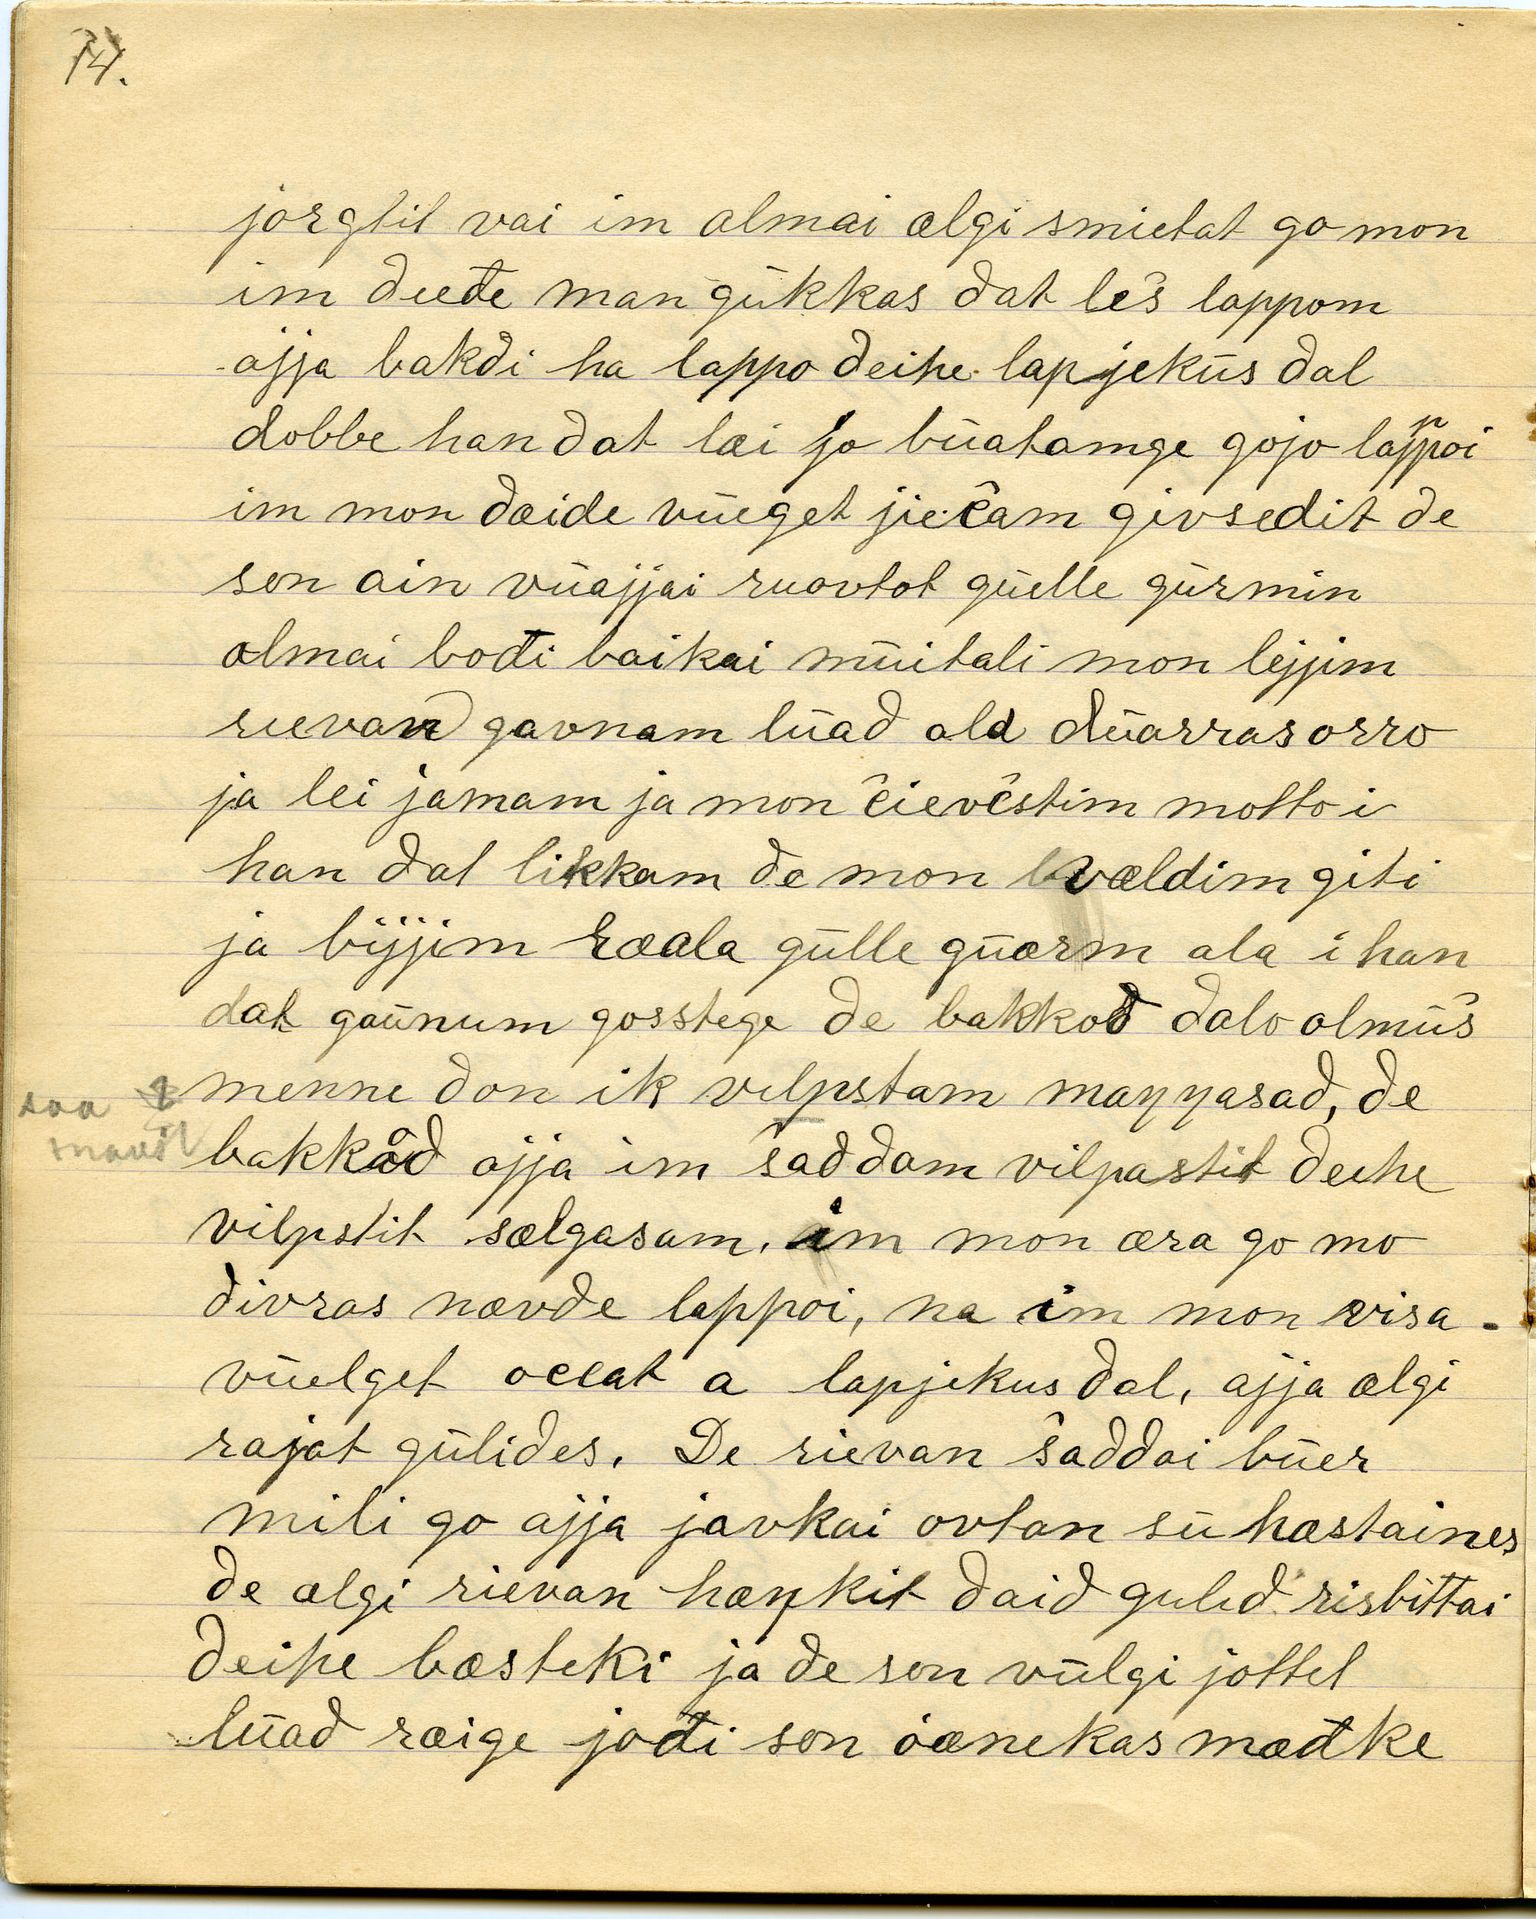 14.
jorgtit vai im olmai ælgi smietat go mon
im deeđe man gükkas dat leš lappom
ajja bakdi ha lappo deihe lapjeküs dal
dobbe han dat læi jo büatamge gojo lappoi
im mon dæide vüeget jiečam givsedit de
son ain vüajjai ruovtot güelle gürmin
olmai bođi baikai müitali mon lejjim
rievan gavnam lüad ala düarras orro
ja lei jamam ja mon čievčstim motto i
han dat likkam de mon vældim giti
ja bijjim ræala gülle güærm ala i han
dat gaünum gosstege de bakkod dalo olmüš
menne don ik velpstam maŋŋasad, de
bakkåd ajja im šaddam vilpastit deihe
vilpstit sælgasam. im mon æra go mo
divras nævde lappoi, na im mon visa
vüelget occat a lapjekus dal, ajja ælgi
rajat gülides. De rievan šaddai büer
mili go ajja javkai ovtan sü hæstaines
de ælgi rievan hæŋkit daid gulid risbittai
deihe bæsteki ja de son vülgi jottel
lüad ræige jođi son oænekas mæđke